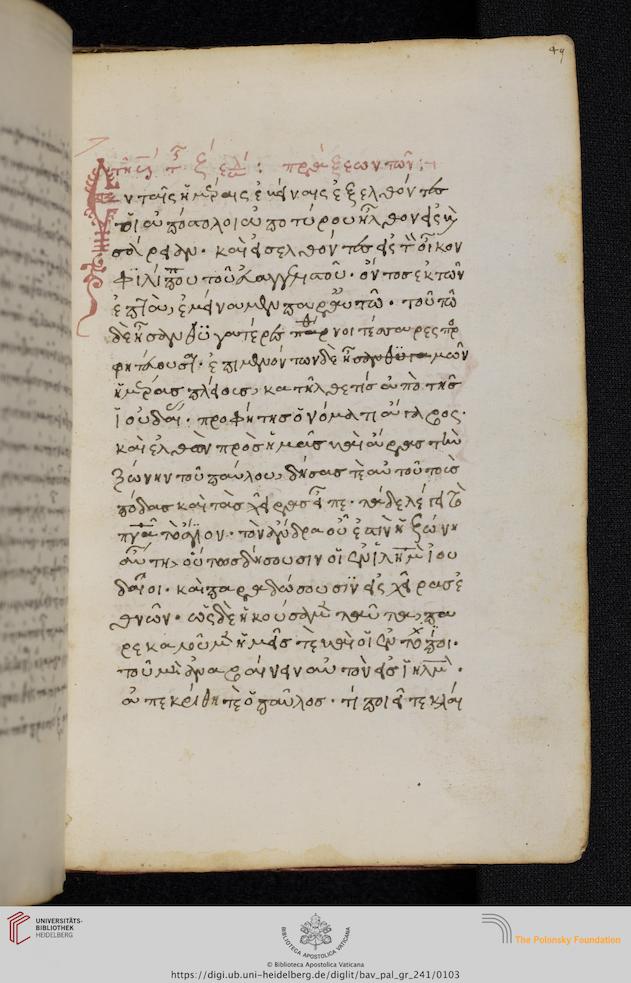 49
πράξεων τῶν
Ἐν ταῖς ἡμέραις ἐκείναις ἐξελθόντες
οἱ ἀπόστολοι ἀπο τύρου ἦλθον εἰς και
σάρειαν. καὶ εἰσελθόντες εἰς τὸν οἶκον
Φιλίππου τοῦ εὐαγγελιστοῦ. ὄντος ἐκ τῶν
ἑπτὰ, ἐμείναμεν παρ' αὐτῷ. τούτῳ
δὲ ἦσαν θυγατέρες παρθένοι τέσσαρες προ
φητεύουσαι. ἐπιμενόντων δὲ ἡμῶν
ἡμέρας πλείους, κατῆλθε τίς ἀπὸ τῆς
Ἰουδαίας. προφήτης ὀνόματι ἄγαβος.
καὶ ἐλθὼν πρὸς ἡμᾶς καὶ ἄρας τὴν
ζώνην τοῦ παύλου, δήσας τὲ αὐτοῦ τοὺς
πόδας καὶ τὰς χεῖρας εἶπε. τάδε λέγει τὸ
πνα τὸ ἅγιον. τὸν ἄνδρα οὗ ἐστὶν ἡ ζώνη
αὕτη, οὕτως δήσουσιν οἱ ἐν ἱλημ ἰου
δαῖοι. καὶ παραδώσουσιν εἰς χεῖρας ἐ
θνῶν. ὡς δὲ ἠκούσαμεν ταῦτα, πα
ρεκαλοῦμεν ἡμεῖς τὲ καὶ οἱ ἐντόπιοι.
τοῦ μὴ ἀναβαίνειν αὐτὸν εἰς ἱηλμ.
ἀπεκρίθη τὲ ὁ παῦλος. τί ποιεῖτε κλαί
UNIVERSITÄTS-
BIBLIOTHEK
HEIDELBERG
BIBLIOTECA APOSTOLICA VATICANA
The Polonsky Foundation
© Biblioteca Apostolica Vaticana
https://digi.ub.uni-heidelberg.de/diglit/bav_pal_gr_241/0103